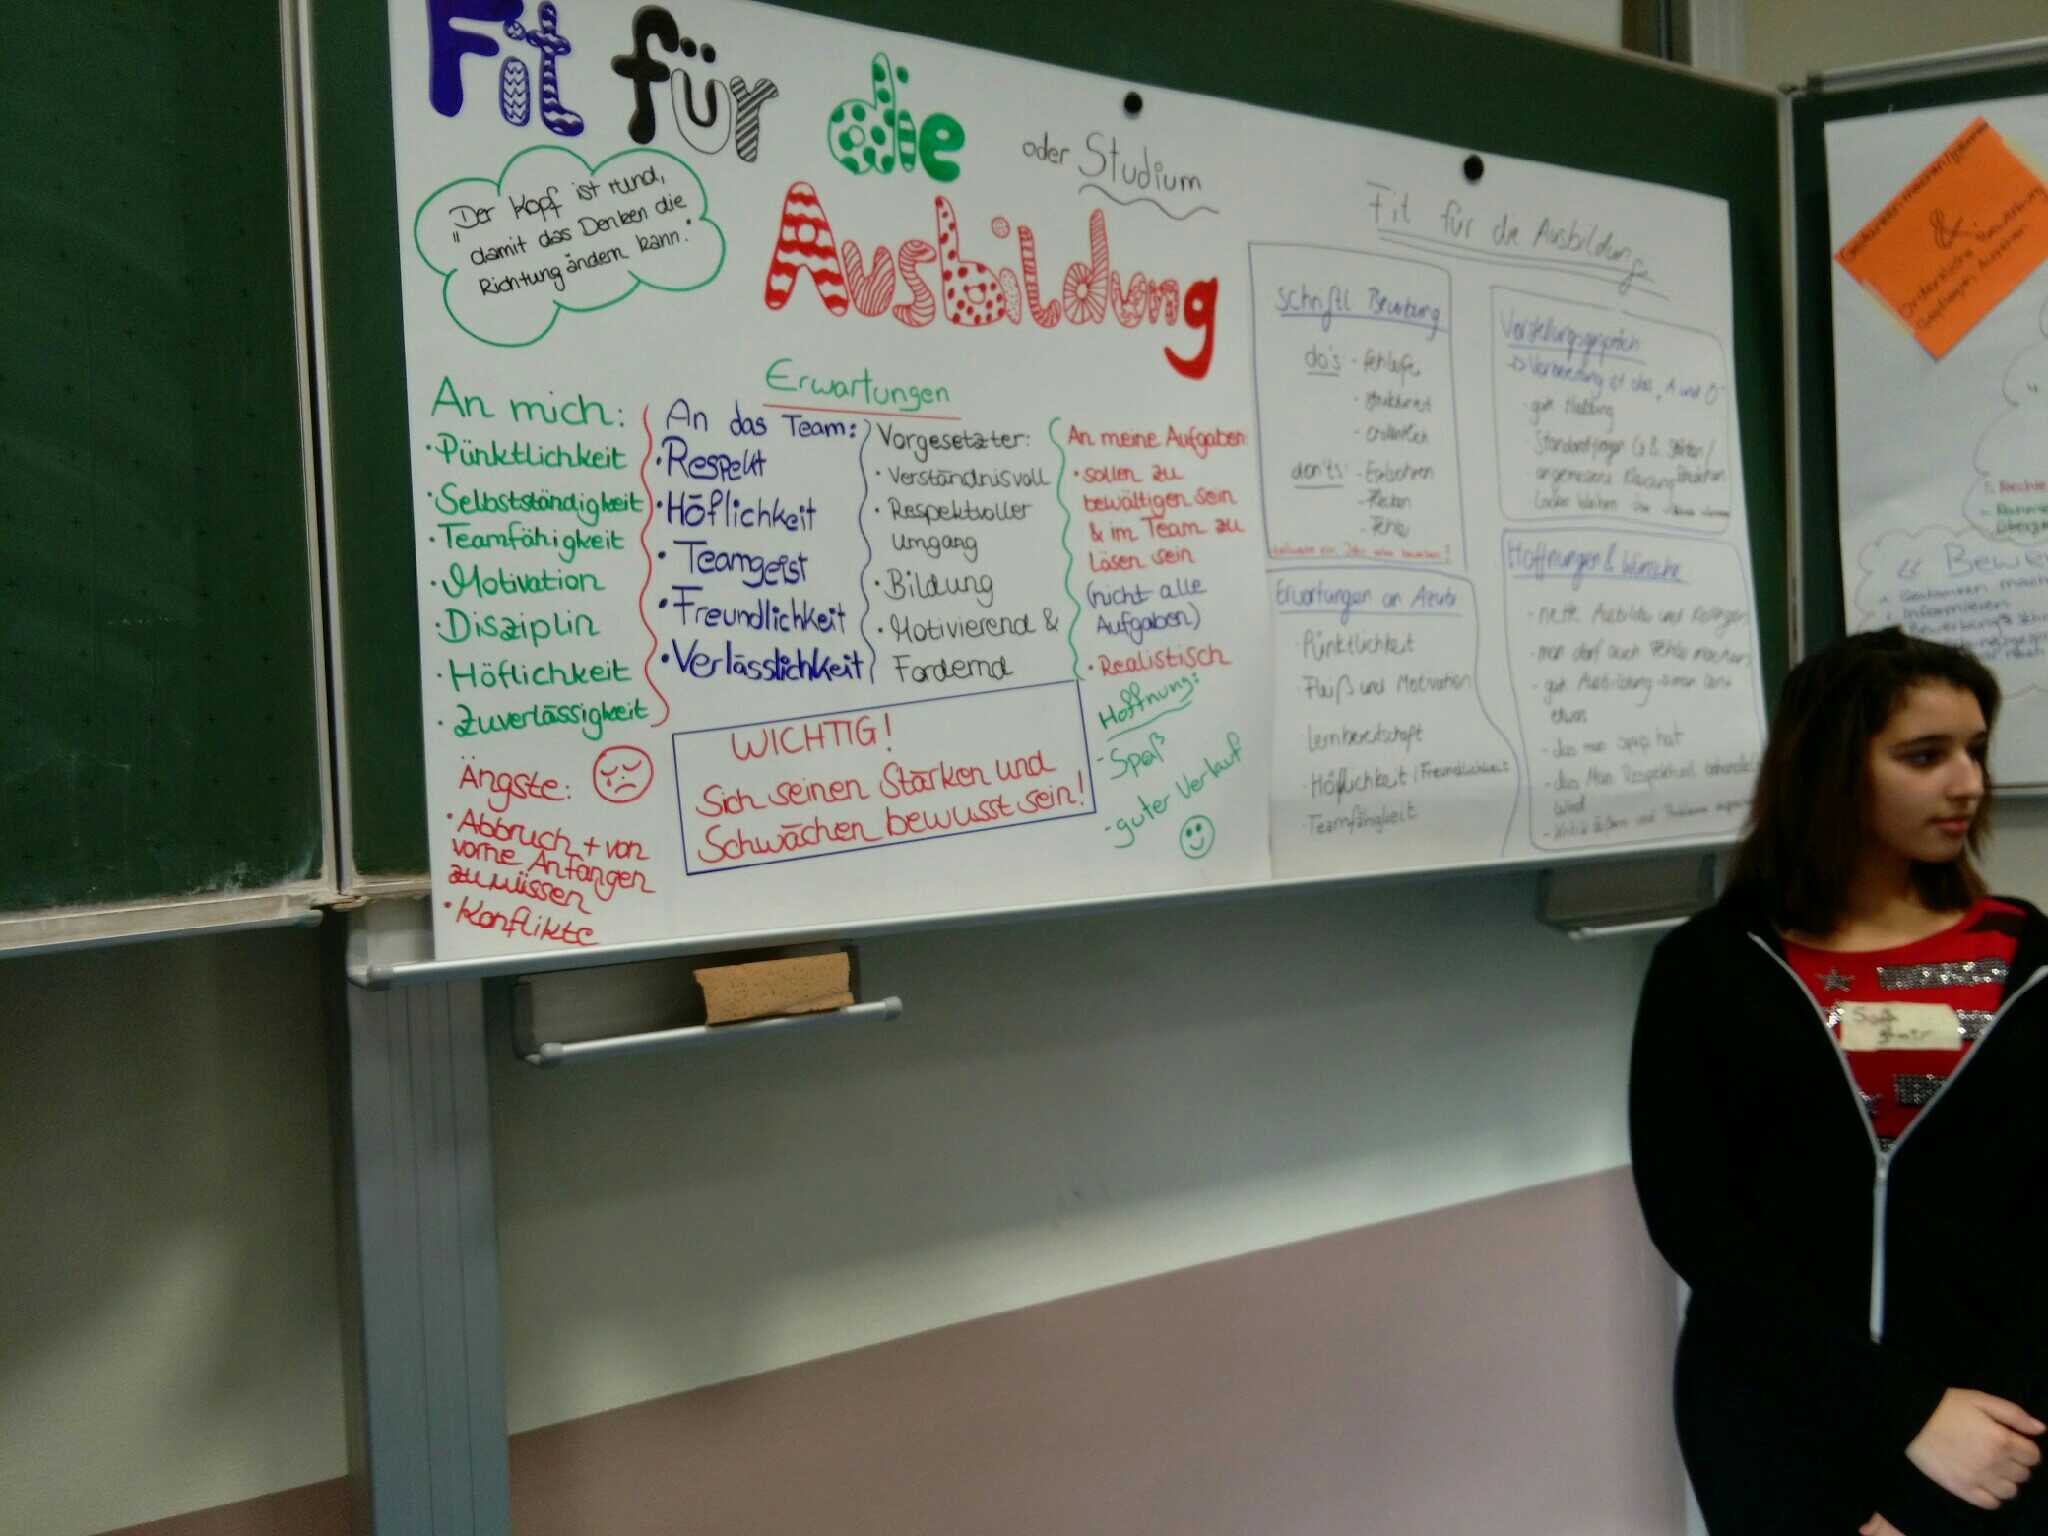 Fit für die
oder Studium
Ausbildung
"Der Kopf ist rund,
damit das Denken die
Richtung ändern kann."
Erwartungen
An mich:
· Pünktlichkeit
· Selbstständigkeit
· Teamfähigkeit
· Motivation
· Disziplin
· Höflichkeit
· Zuverlässigkeit
An das Team:
· Respekt
· Höflichkeit
· Teamgeist
· Freundlichkeit
· Verlässlichkeit
Vorgesetzter:
· Verständnisvoll
· Respektvoller
Umgang
· Bildung
· Motivierend &
Fordernd
An meine Aufgaben:
· sollen zu
bewältigen sein
& im Team zu
Lösen sein
(nicht alle
Aufgaben)
· Realistisch
Ängste:
· Abbruch + von
vorne Anfangen
zu müssen
· Konflikte
WICHTIG!
Sich seinen Stärken und
Schwächen bewusst sein!
Hoffnung:
- Spaß
- guter Verlauf
Fit für die Ausbildung
Schriftl Bewerbung
do's -
- strukturiert
- ordentlich
don'ts: - Eselsohren
- Flecken
- Fehler
Vorstellungsgespräch
Vorbereitung ist das "A und O"
- gute Haltung
- Standardfragen
angemessene Kleidung
Locker bleiben
Erwartungen an Azubi
· Pünktlichkeit
· Fleiß und Motivation
· Lernbereitschaft
· Höflichkeit / Freundlichkeit
· Teamfähigkeit
Hoffnungen & Wünsche
- nette Ausbilder und Kollegen
- man darf auch Fehler machen
- gute Ausbildung
etwas
- das man Spaß hat
- das Man Respektvoll behandelt
wird
&